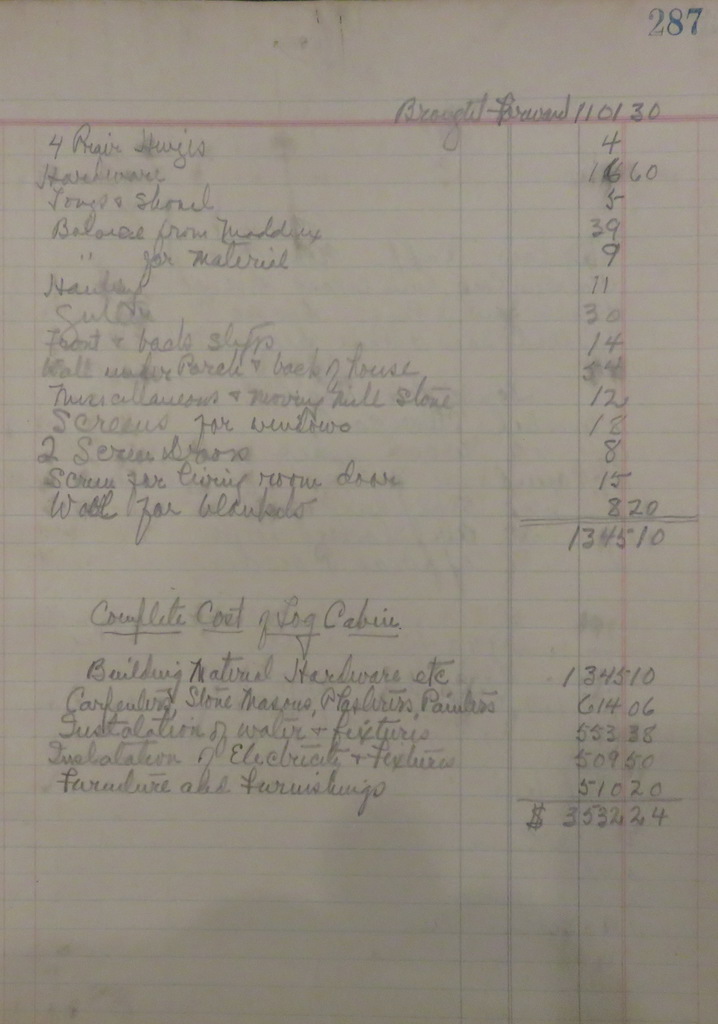 287
Brought Forward 1101 30
4 Pair Hinges 4
Hardware 16 60
Tongs & Shovel 5
Balance from Maddux 39
" for Material 9
Hauling 11
30
Front & back steps 14
Wall under Porch & back of house 54
Miscellaneous & moving mill stone 12
Screens for windows 18
2 Screen Doors 8
Screen for living room door 15
for blankets 8 20
1345 10
Complete Cost of Log Cabin
Building Material Hardware etc 1345 10
Carpenters, Stone Masons, Plasterers, Painters 614 06
Instalation of water & fixturis 553 38
Instalation of Electricity & Fixtures 509 50
Furniture and Furnishings 510 20
$ 3532 24